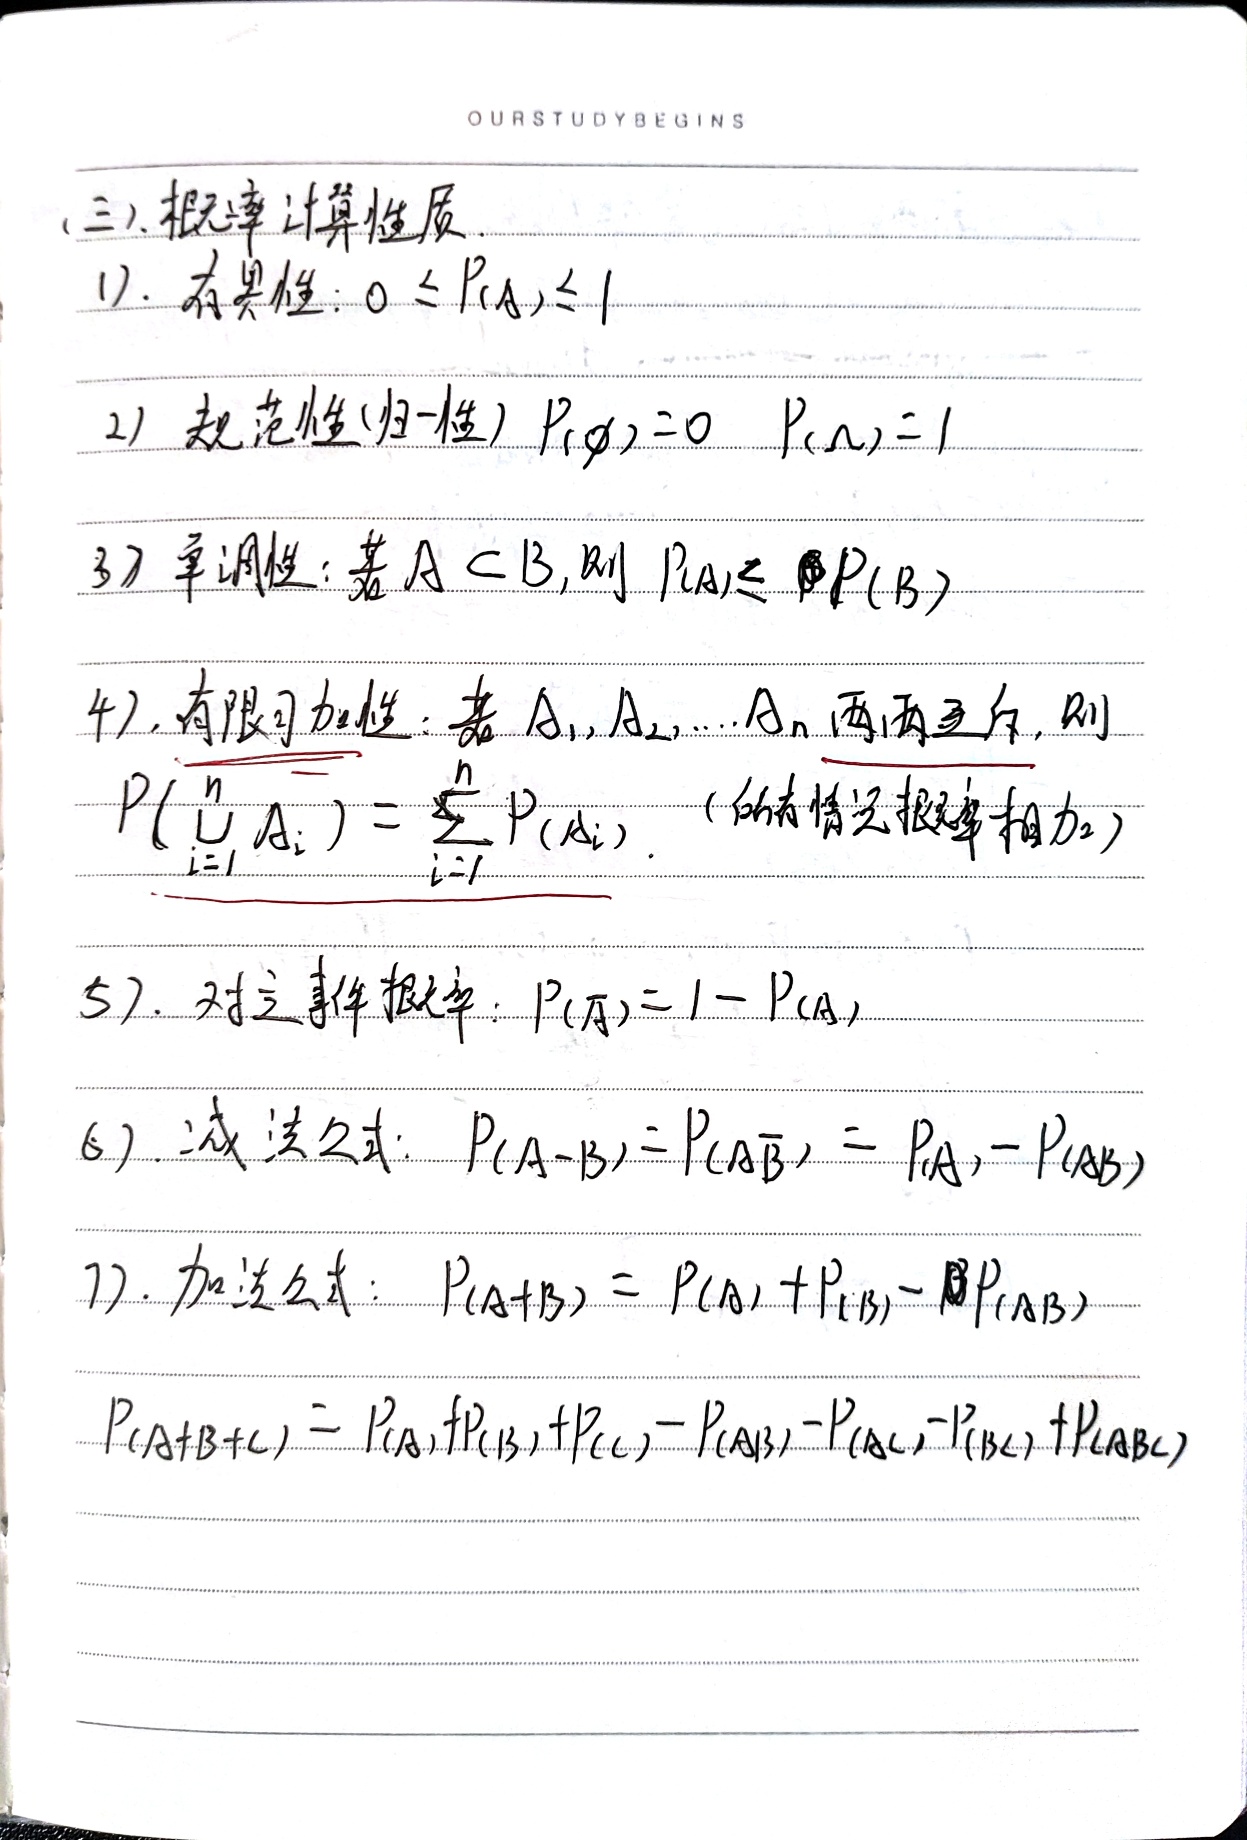 OURSTUDYBEGINS
(三). 概率计算性质.
1). 有界性: 0 ≤ P(A) ≤ 1
2) 规范性(归一性) P(φ)=0 P(Ω)=1
3) 单调性: 若 A ⊂ B, 则 P(A) ≤ P(B)
4). 有限可加性: 若 A₁, A₂, .... Aₙ 两两互斥, 则
P(⋃ⁿᵢ₌₁ Aᵢ) = ∑ⁿᵢ₌₁ P(Aᵢ). (所有情况概率相加)
5). 对立事件概率: P(A̅) = 1 - P(A)
6). 减法公式: P(A-B) = P(AB̅) = P(A) - P(AB)
7). 加法公式: P(A+B) = P(A) + P(B) - P(AB)
P(A+B+C) = P(A)+P(B)+P(C) - P(AB) - P(AC) - P(BC) + P(ABC)